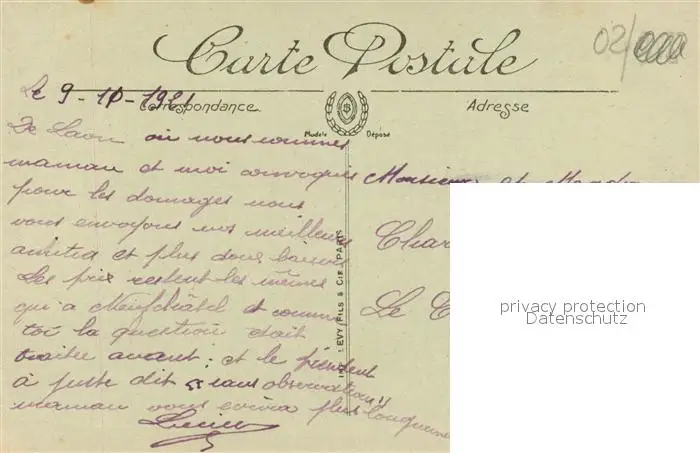 Carte Postale
02/
Correspondance
Adresse
Modèle Déposé
Le 9-10-1921
De Laon où nous sommes
maman et moi convoqués
pour les domages nous
vous envoyons nos meilleurs
et plus doux baisers
Les prix restent les mêmes
qu'a Neufchâtel et comme
toi la question était
traitée avant : et le président
à juste dit "sans observation"
maman vous écrira plus longuement
Monsieur et Madame
Le
LEVY FILS & CIE, PARIS
privacy protection
Datenschutz